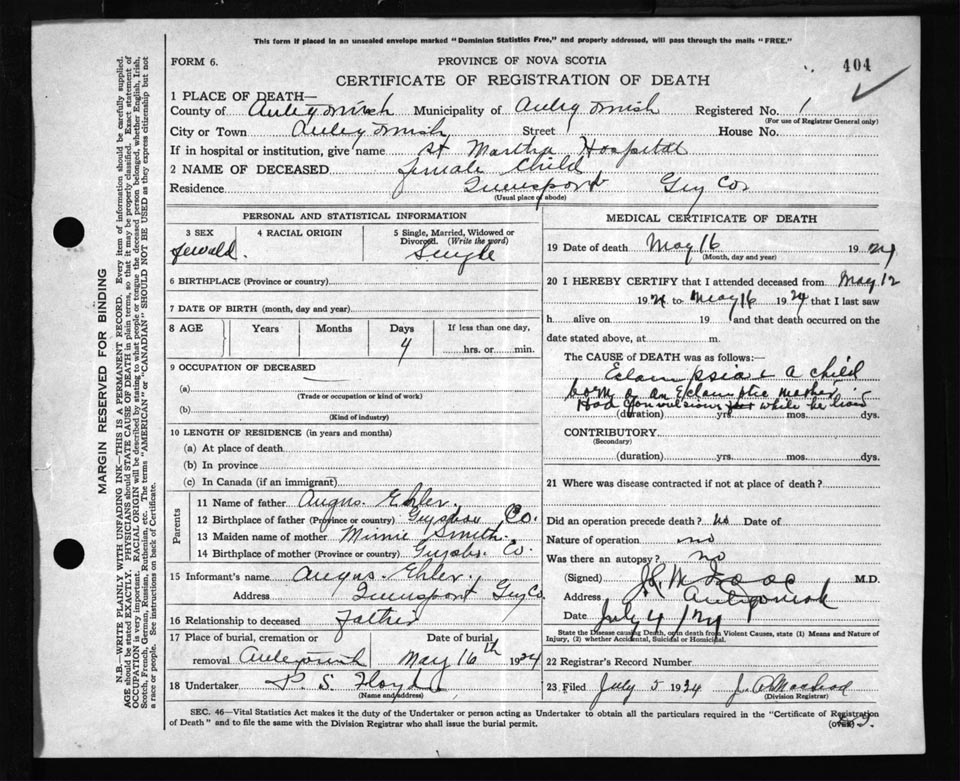 This form if placed in an unsealed envelope marked "Dominion Statistics Free," and properly addressed, will pass through the mails "FREE."
FORM 6.
PROVINCE OF NOVA SCOTIA
404
CERTIFICATE OF REGISTRATION OF DEATH
1 PLACE OF DEATH—
County of Antigonish Municipality of Antigonish Registered No. 1
(For use of Registrar General only)
City or Town Antigonish Street House No.
If in hospital or institution, give name St Martha Hospital
2 NAME OF DECEASED female Child
Residence Queensport Guy Co
(Usual place of abode)
PERSONAL AND STATISTICAL INFORMATION
3 SEX
4 RACIAL ORIGIN
5 Single, Married, Widowed or Divorced. (Write the word)
Single
6 BIRTHPLACE (Province or country)
7 DATE OF BIRTH (month, day and year)
8 AGE Years Months Days If less than one day,
4 hrs. or min.
9 OCCUPATION OF DECEASED
(a)
(Trade or occupation or kind of work)
(b)
(Kind of industry)
10 LENGTH OF RESIDENCE (in years and months)
(a) At place of death
(b) In province
(c) In Canada (if an immigrant)
Parents
11 Name of father Angus Ehler
12 Birthplace of father (Province or country) Guysboro Co.
13 Maiden name of mother Minnie Smith
14 Birthplace of mother (Province or country) Guysbo. Co.
15 Informant's name Angus Ehler
Address Queensport Guy Co.
16 Relationship to deceased Father
17 Place of burial, cremation or Date of burial
removal Antigonish May 16th 1924
18 Undertaker P. S. Floyd
(Name and address)
MEDICAL CERTIFICATE OF DEATH
19 Date of death May 16 1924
(Month, day and year)
20 I HEREBY CERTIFY that I attended deceased from May 12
1924 to May 16 1924 that I last saw
h alive on 19 and that death occurred on the
date stated above, at m.
The CAUSE OF DEATH was as follows:—
Eclampsia a child
born of an Eclamptic mother
Had convulsions while
(duration) yrs. mos. dys.
CONTRIBUTORY
(Secondary)
(duration) yrs. mos. dys.
21 Where was disease contracted if not at place of death?
Did an operation precede death? no Date of
Nature of operation no
Was there an autopsy? no
(Signed) M.D.
Address Antigonish
Date July 4/24
State the Disease causing Death, or in death from Violent Causes, state (1) Means and Nature of Injury, (2) whether Accidental, Suicidal or Homicidal.
22 Registrar's Record Number
23 Filed July 5 1924 J. A. MacLeod
(Division Registrar)
SEC. 46—Vital Statistics Act makes it the duty of the Undertaker or person acting as Undertaker to obtain all the particulars required in the "Certificate of Registration
of Death" and to file the same with the Division Registrar who shall issue the burial permit. (OVER)
MARGIN RESERVED FOR BINDING
N.B.—WRITE PLAINLY WITH UNFADING INK—THIS IS A PERMANENT RECORD. Every item of information should be carefully supplied.
AGE should be stated EXACTLY. PHYSICIANS should STATE CAUSE OF DEATH in plain terms, so that it may be properly classified. Exact statement of
OCCUPATION is very important. RACIAL ORIGIN will be described by stating to what people or tongue the deceased person belonged, whether English, Irish,
Scotch, French, German, Russian, Ruthenian, etc. The terms "AMERICAN" or "CANADIAN" SHOULD NOT BE USED as they express citizenship but not
a race or people. See instructions on back of Certificate.